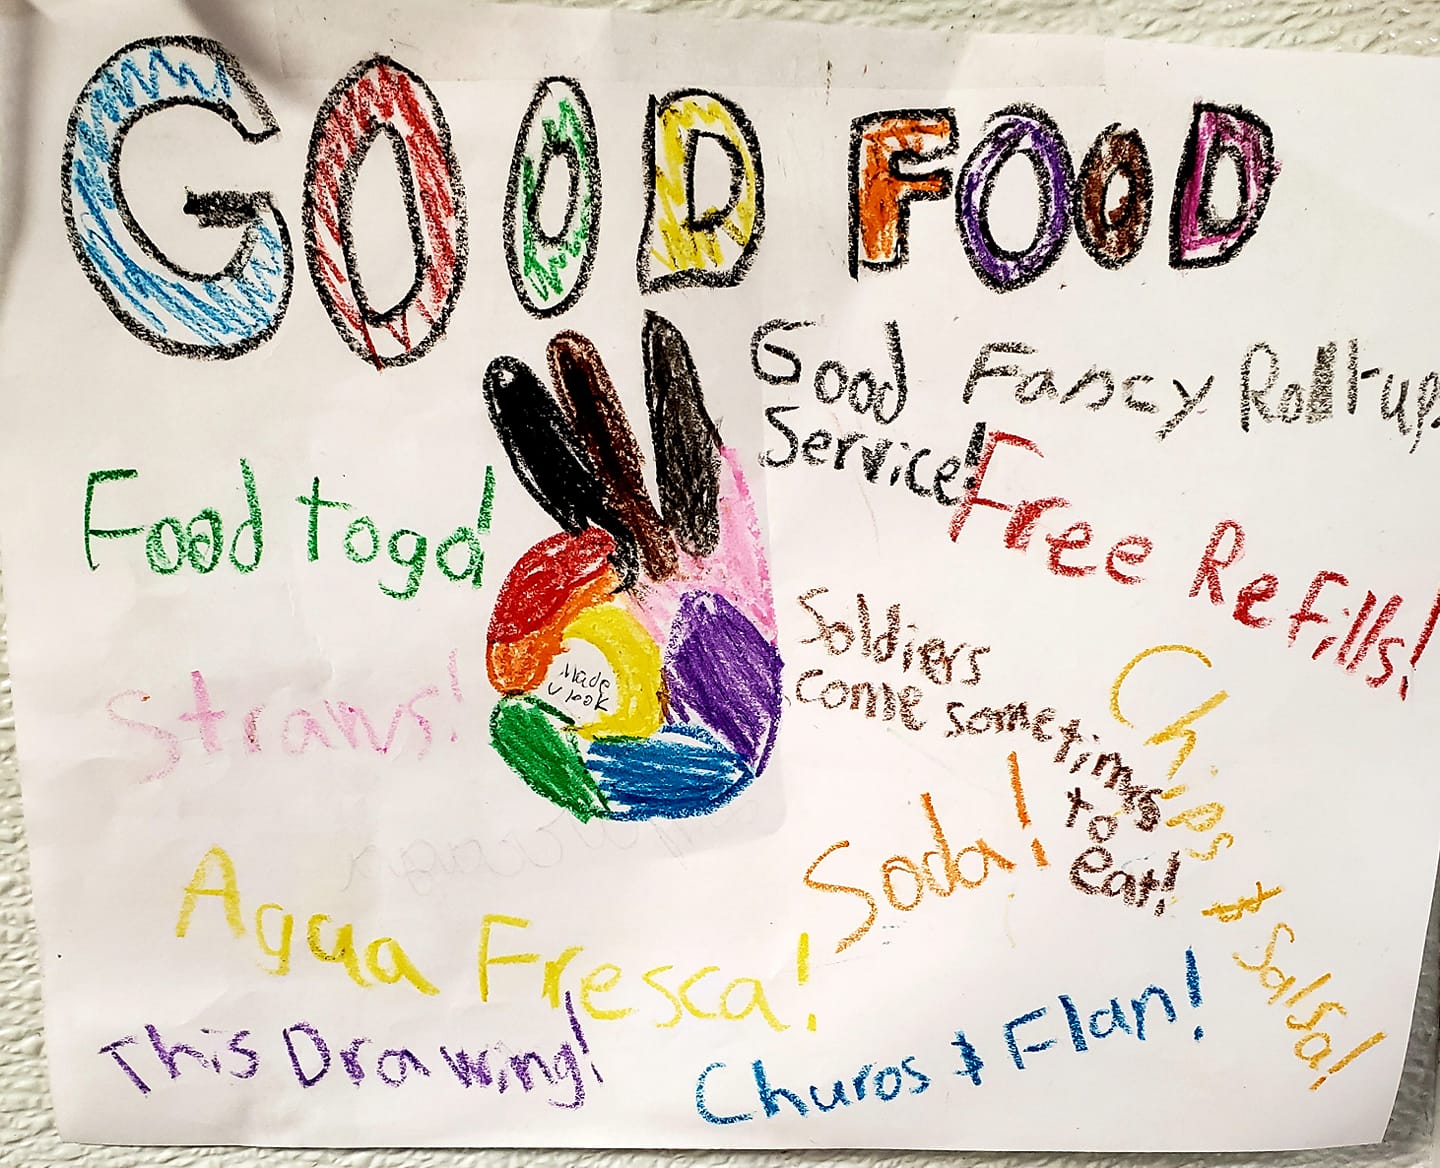 GOOD FOOD
Good
Service!
Fancy Roll-ups
Food togo!
Free Refills!
Straws!
Made
U look
Soldiers
come sometimes
to
eat!
Chips & Salsa!
Soda!
Agua Fresca!
This Drawing!
Churos & Flan!